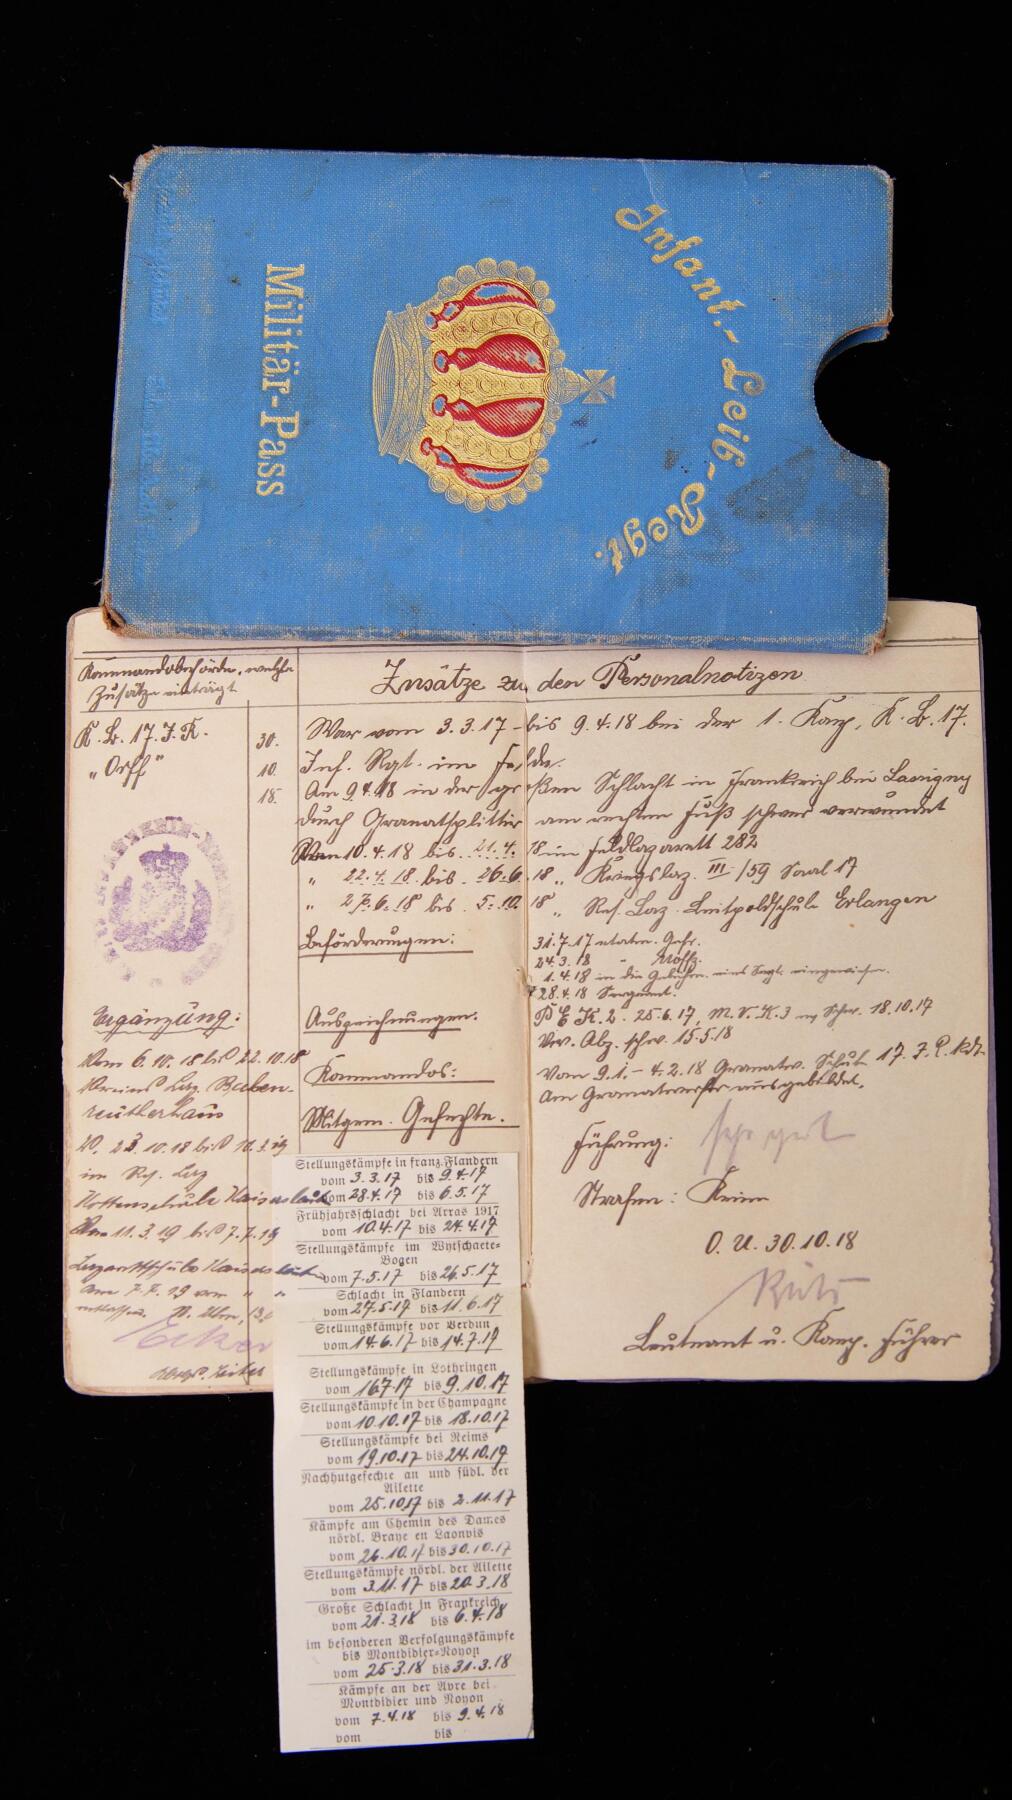 Infant.-Leib-Regt.
Militär-Pass
Kommandobehörde, welche
Zusätze einträgt
Zusätze zu den Personalnotizen
K. B. 17. J. R.
"Orff"
30.
10.
18.
War vom 3.3.17 - bis 9.4.18 bei der 1. Komp. K. B. 17.
Inf. Rgt. im Felde.
Am 9.4.18 in der großen Schlacht in Frankreich bei Lassigny
durch Granatsplitter am rechten Fuß schwer verwundet
Vom 10.4.18 bis 21.4.18 im Feldlazarett 282
" 22.4.18 bis 26.6.18 " Kriegslaz. III/59 Saal 17
" 27.6.18 bis 5.10.18 " Res. Laz. Luitpoldschule Erlangen
Beförderungen:
31.7.17 Gefr.
24.3.18 " Uoffz.
1.4.18 in die eingewiesen.
28.4.18 Sergeant.
Auszeichnungen:
P E K. 2. 25.6.17, M. V. K. 3 m Schw. 18.10.17
Verw. Abz. schw. 15.5.18
Kommandos:
Vom 9.1. - 4.2.18 Granatw. Schule 17. J. R. Kdt.
Am Granatwerfer ausgebildet.
Mitgem. Gefechte.
Führung: sehr gut
Strafen: Keine
O. U. 30.10.18
Leutnant u. Komp. Führer
Ergänzung:
Vom 6.10.18 bis 22.10.18
Vereins Laz. Buben-
reutherhaus
V. 23.10.18 bis 10.3.19
im Res. Laz
Kaiserslautern
Vom 11.3.19 bis 7.7.19
Lazarettschule Kaiserslautern
am 7.7.19 von " "
entlassen. N. Ulm,
Stellungskämpfe in franz. Flandern
vom 3.3.17 bis 9.4.17
vom 28.4.17 bis 6.5.17
Frühjahrsschlacht bei Arras 1917
vom 10.4.17 bis 24.4.17
Stellungskämpfe im Wytschaete-
Bogen
vom 7.5.17 bis 26.5.17
Schlacht in Flandern
vom 27.5.17 bis 11.6.17
Stellungskämpfe vor Verdun
vom 14.6.17 bis 14.7.17
Stellungskämpfe in Lothringen
vom 16.7.17 bis 9.10.17
Stellungskämpfe in der Champagne
vom 10.10.17 bis 18.10.17
Stellungskämpfe bei Reims
vom 19.10.17 bis 24.10.17
Nachhutgefechte an und südl. der
Ailette
vom 25.10.17 bis 2.11.17
Kämpfe am Chemin des Dames
nördl. Braye en Laonois
vom 26.10.17 bis 30.10.17
Stellungskämpfe nördl. der Ailette
vom 3.11.17 bis 20.3.18
Große Schlacht in Frankreich
vom 21.3.18 bis 6.4.18
im besonderen Verfolgungskämpfe
bis Montdidier-Noyon
vom 25.3.18 bis 31.3.18
Kämpfe an der Avre bei
Montdidier und Noyon
vom 7.4.18 bis 9.4.18
vom bis